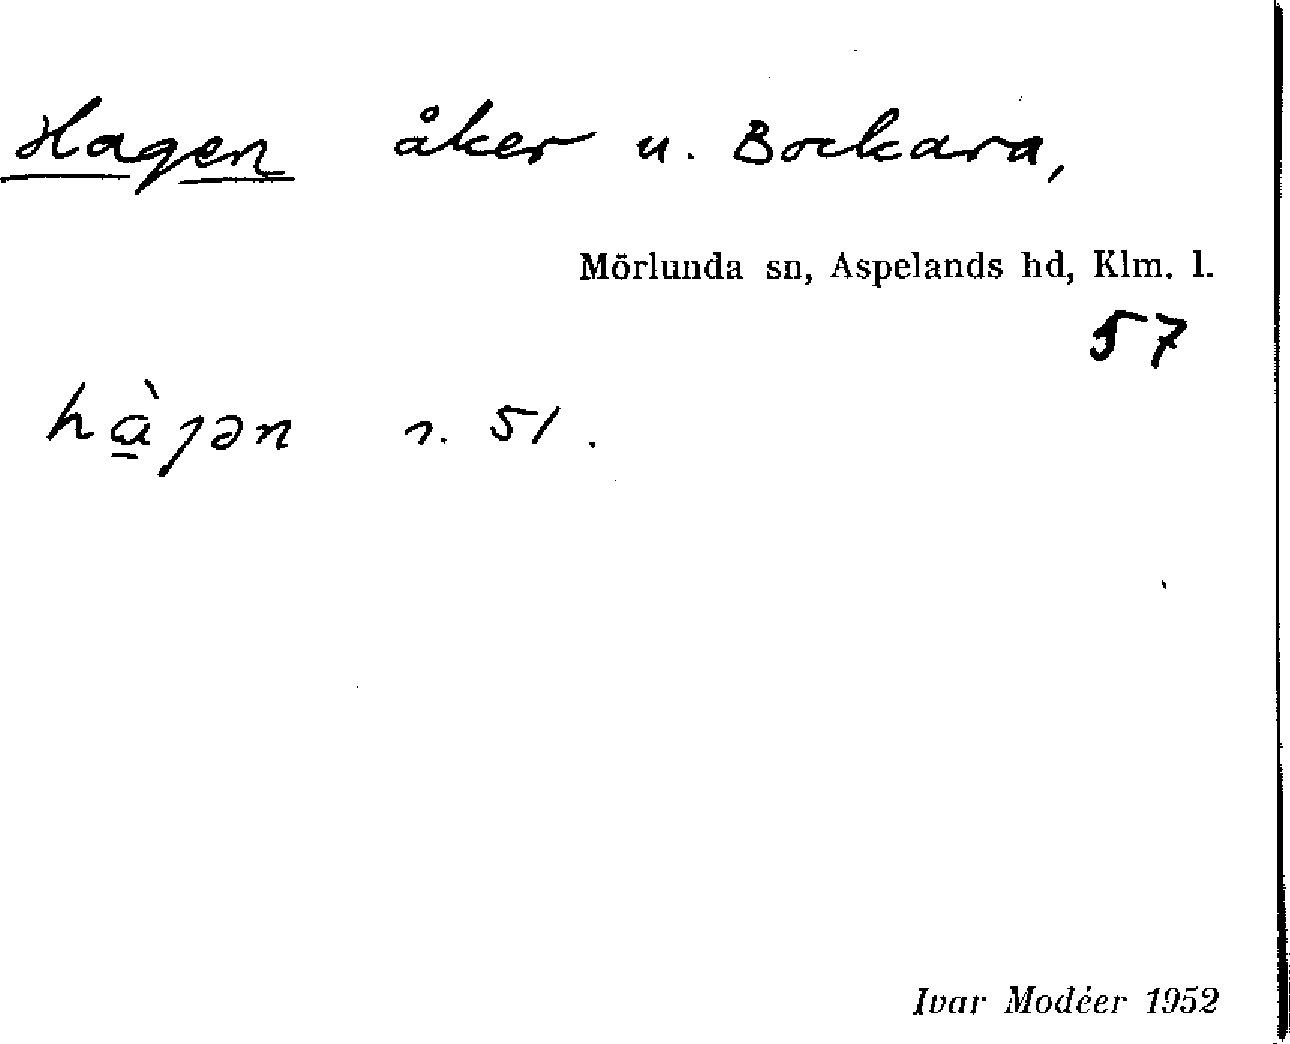 Hagen åker u. Bockara,
Mörlunda sn, Aspelands hd, Klm. l.
57
hàȷən s. 51.
Ivar Modéer 1952